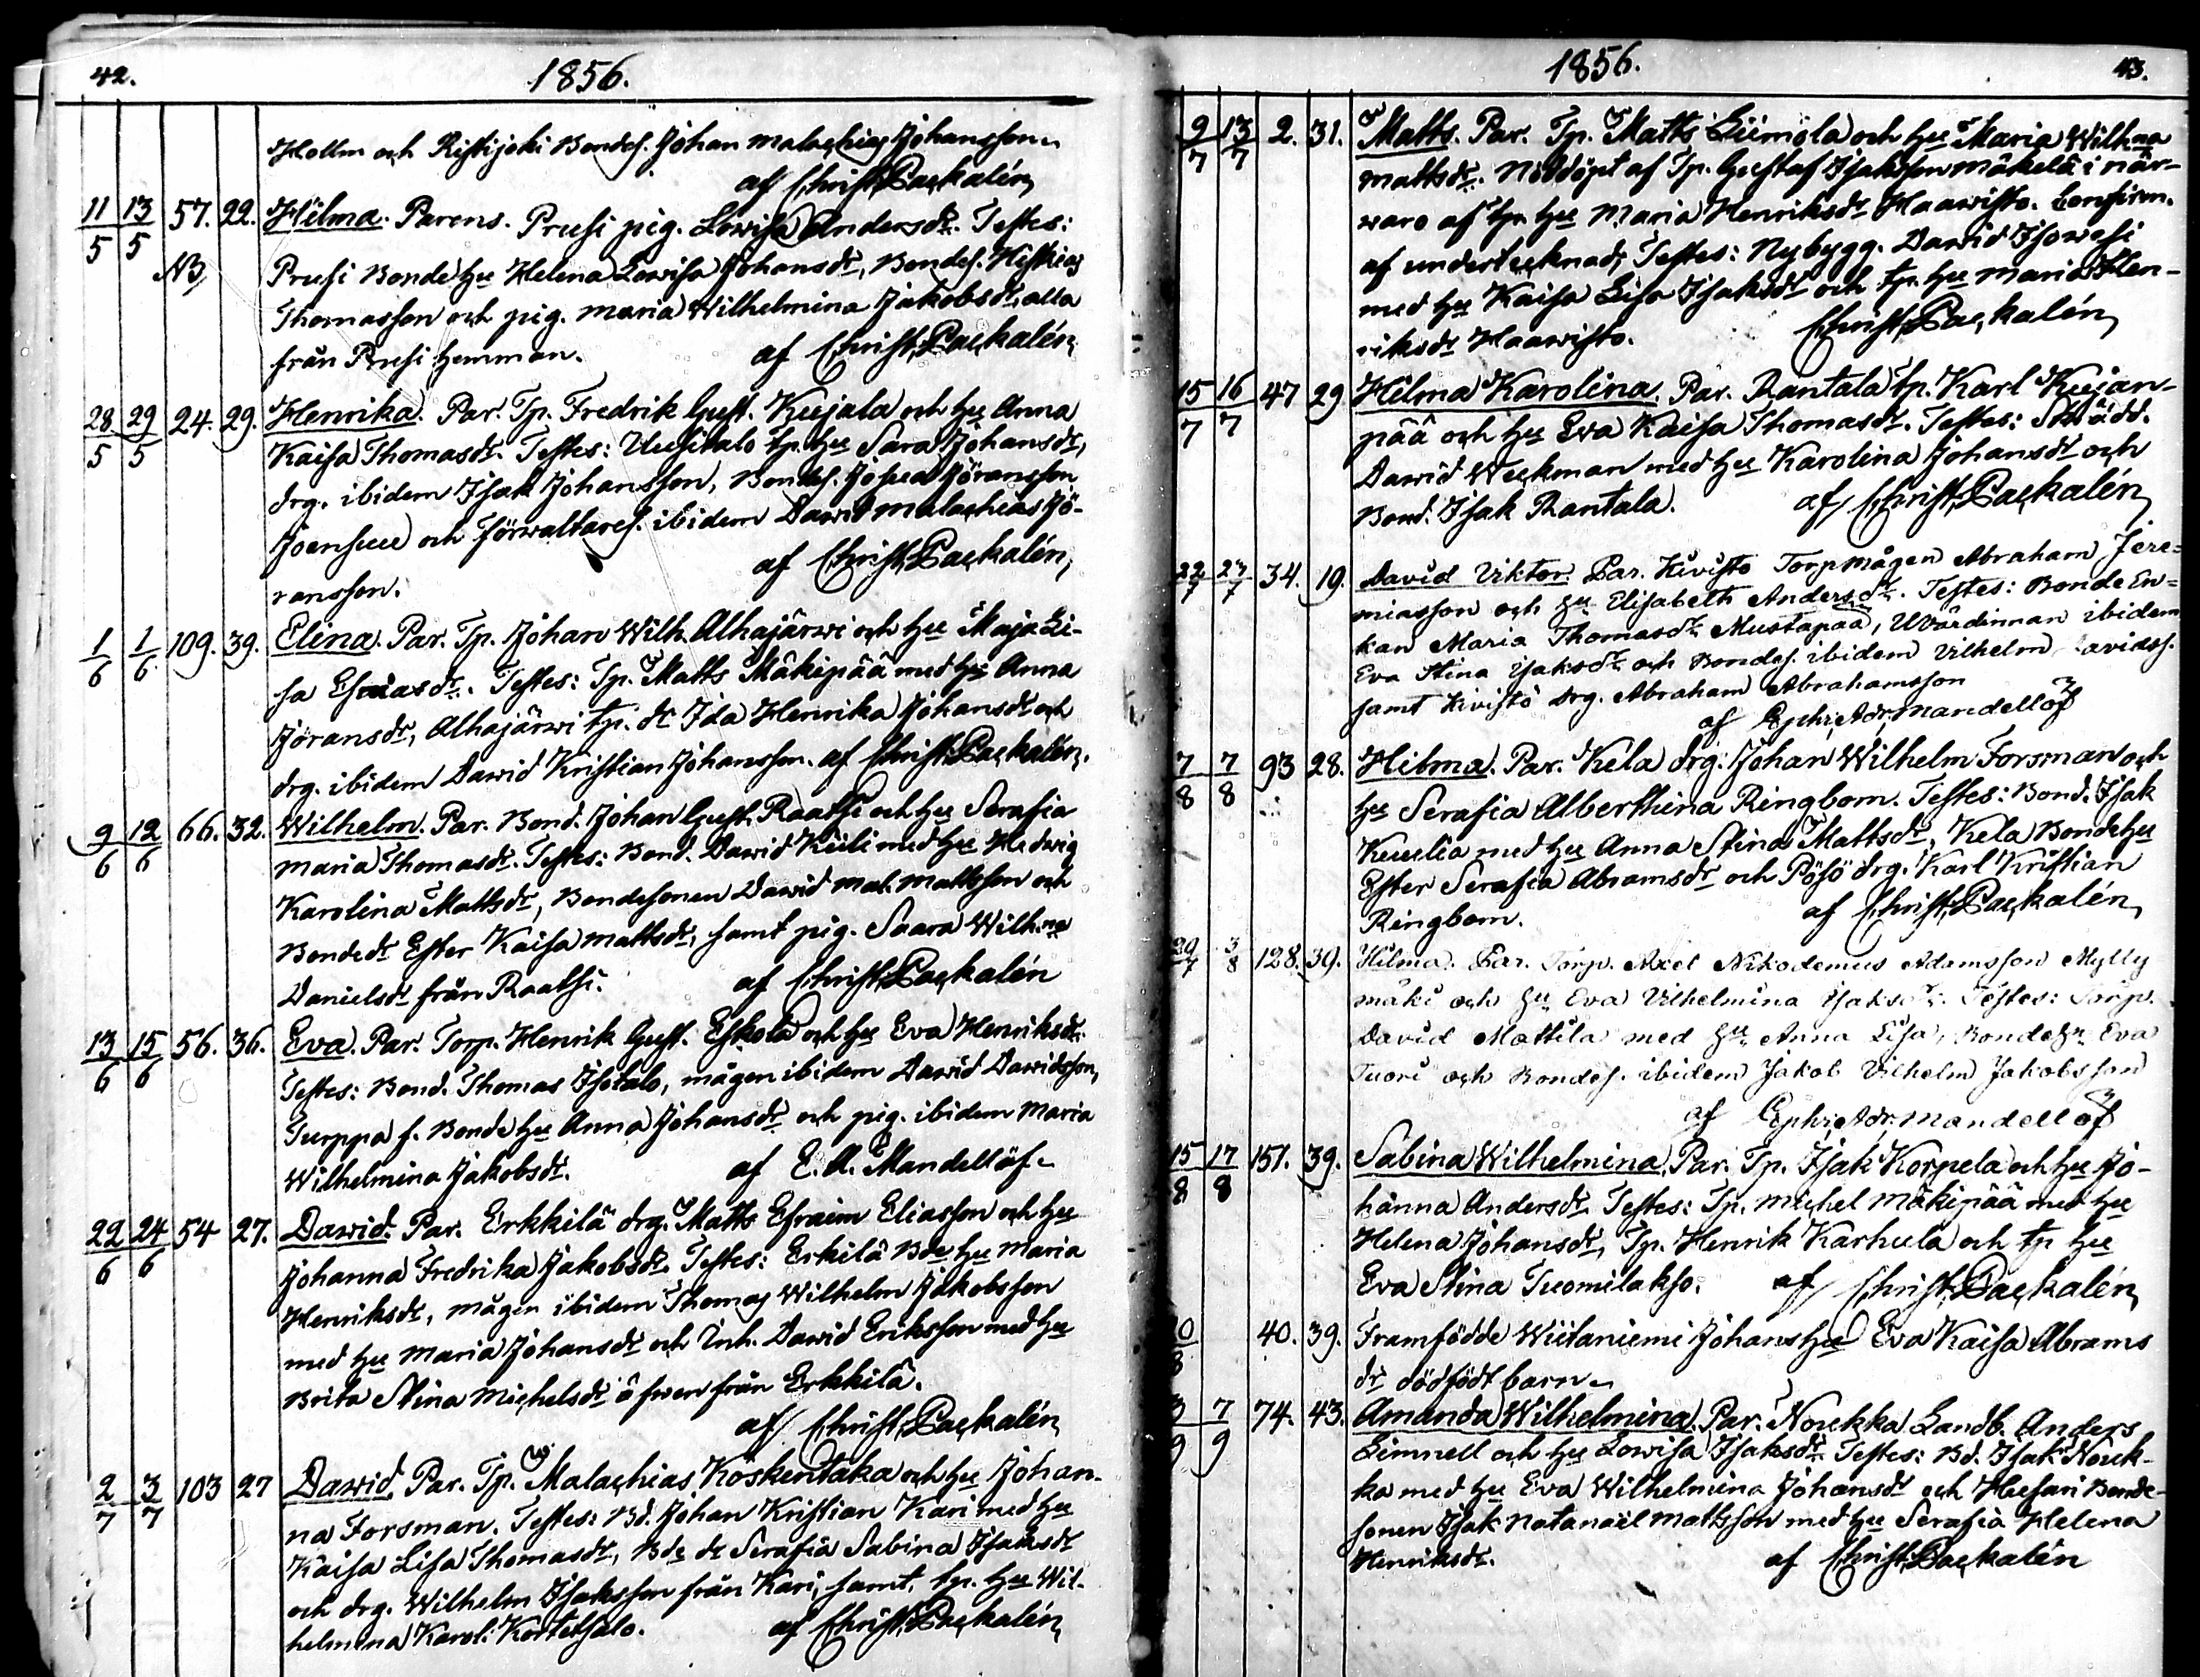 42.
1856.
Hollm och Ristijoki Bondes. Johan Malachias Johansson
af Christ. Packalén
11/5 13/5 57. 22. Hilma. Parens. Prusi pig. Lovisa Andersdr. Testes:
NB Prusi Bonde hu Helena Lovisa Johansdr, Bondes. Hiskias
Thomasson och pig. Maria Wilhelmina Jakobsdr, alla
från Prusi hemman. af Christ. Packalén
28/5 29/5 24. 29. Henrika. Par. Tp. Fredrik Gust. Kujala och hu Anna
Kaisa Thomasdr. Testes: Uusitalo tp. hu Sara Johansdr,
drg. ibidem Isak Johansson, Bondes. Josua Jöransson
Joensuu och Förwaltares. ibidem Dawid Malachias Jö-
ransson. af Christ. Packalén,
1/6 1/6 109. 39. Elina. Par. Tp. Johan Wilh. Alhajärwi och hu Maja Li-
sa Esaiasdr. Testes: Tp. Matts Mäkipää med hu Anna
Jöransdr, Alhajärwi tp. dr Ida Henrika Johansdr och
drg. ibidem Dawid Kristian Johansson. af Christ. Packalén.
9/6 12/6 66. 32. Wilhelm. Par. Bond. Johan Gust. Raatsi och hu Serafia
Maria Thomasdr. Testes: Bond. Dawid Keili med hu Hedvig
Karolina Mattsdr, Bondesonen Dawid Mal. Mattsson och
Bondedr Ester Kaisa Mattsdr, samt pig. Saara Wilh.na
Danielsdr från Raatsi. af Christ. Packalén
13/6 15/6 56. 36. Eva. Par. Torp. Henrik Gust. Eskola och hu Eva Henriksdr.
Testes: Bond. Thomas Isotalo, mågen ibidem Dawid Dawidsson,
Turppa f. Bonde hu Anna Johansdr och pig. ibidem Maria
Wilhelmina Jakobsdr. af E. A. Mandellöf
22/6 24/6 54 27. Dawid. Par. Erkkilä drg. Matts Efraim Eliasson och hu
Johanna Fredrika Jakobsdr. Testes: Erkilä Bde hu Maria
Henriksdr, mågen ibidem Thomas Wilhelm Jakobsson
med hu Maria Johansdr och Inh. Dawid Eriksson med hu
Brita Stina Michelsdr äfwen från Erkkilä.
af Christ. Packalén
2/7 3/7 103 27 Dawid. Par. Tp. Malachias Koskentaka och hu Johan-
na Forsman. Testes: Bd. Johan Kristian Kari med hu
Kaisa Lisa Thomasdr, Bde dr Serafia Sabina Isaksdr
och drg. Wilhelm Isaksson från Kari, samt tp. hu Wil-
helmina Karol. Kortetsalo. af Christ. Packalén
1856.
43.
9/7 13/7 2. 31. Matts. Par. Tp. Matts Liimola och hu Maria Wilh.na
Mattsdr. Nöddöpt af Tp. Gustaf Isaksson Mäkelä i när-
waro af tp. hu Maria Henriksdr Haawisto. Confirm.
af undertecknad, Testes: Nybygg. Dawid Isowesi
med hu Kaisa Lisa Isaksdr och tp. hu Maria Hen-
riksdr Haawisto. Christ. Packalén
15/7 16/7 47 29 Hilma Karolina. Par. Rantala tp. Karl Kujan-
pää och hu Eva Kaisa Thomasdr. Testes: Skrädd.
Dawid Weckman med hu Karolina Johansdr och
Bond. Isak Rantala. af Christ. Packalén
22/7 27/7 34. 19. David Viktor. Par. Kivistö Torpmågen Abraham Jere=
miasson och hu Elisabeth Andersdr. Testes: Bonde En=
kan Maria Thomasdr Mustapää, Wärdinnan ibidem
Eva Stina Isaksdr och Bondes. ibidem Vilhelm Davidss.
samt Kivistö Drg. Abraham Abrahamsson
af Ephr. Adr. Mandellöf
7/8 7/8 93 28. Hilma. Par. Kela drg. Johan Wilhelm Forsman och
hu Serafia Alberthina Ringbom. Testes: Bond. Isak
med hu Anna Stina Mattsdr, Kela Bonde hu
Ester Serafia Abramsdr och Pösö drg. Karl Kristian
Ringbom. af Christ. Packalén
29/7 3/8 128. 39. Hilma. Par. Torp. Axel Nikodemus Adamsson Mylly
mäki och hu Eva Vilhelmina Isaksdr. Testes: Torp.
David Mattila med hu Anna Lisa, Bonde hu Eva
Tuori och Bondes. ibidem Jakob Vilhelm Jakobsson
af Ephr. Adr. Mandellöf
15/8 17/8 151. 39. Sabina Wilhelmina. Par. Tp. Isak Korpela och hu Jo-
hanna Andersdr. Testes: Tp. Michel Mäkipää med hu
Helena Johansdr, Tp. Henrik Karhula och tp hu
Eva Stina Tuomilakso. af Christ. Packalén
40. 39. Framfödde Wiitaniemi Johans hu Eva Kaisa Abrams
dr dödfödt barn
3/9 7/9 74. 43. Amanda Wilhelmina. Par. Noukka Landb. Anders
Limnell och hu Lowisa Isaksdr. Testes: Bd. Isak Nouk-
ka med hu Eva Wilhelmina Johansdr och Husari Bonde-
sonen Isak Natanael Mattsson med hu Serafia Helena
Henriksdr. af Christ. Packalén